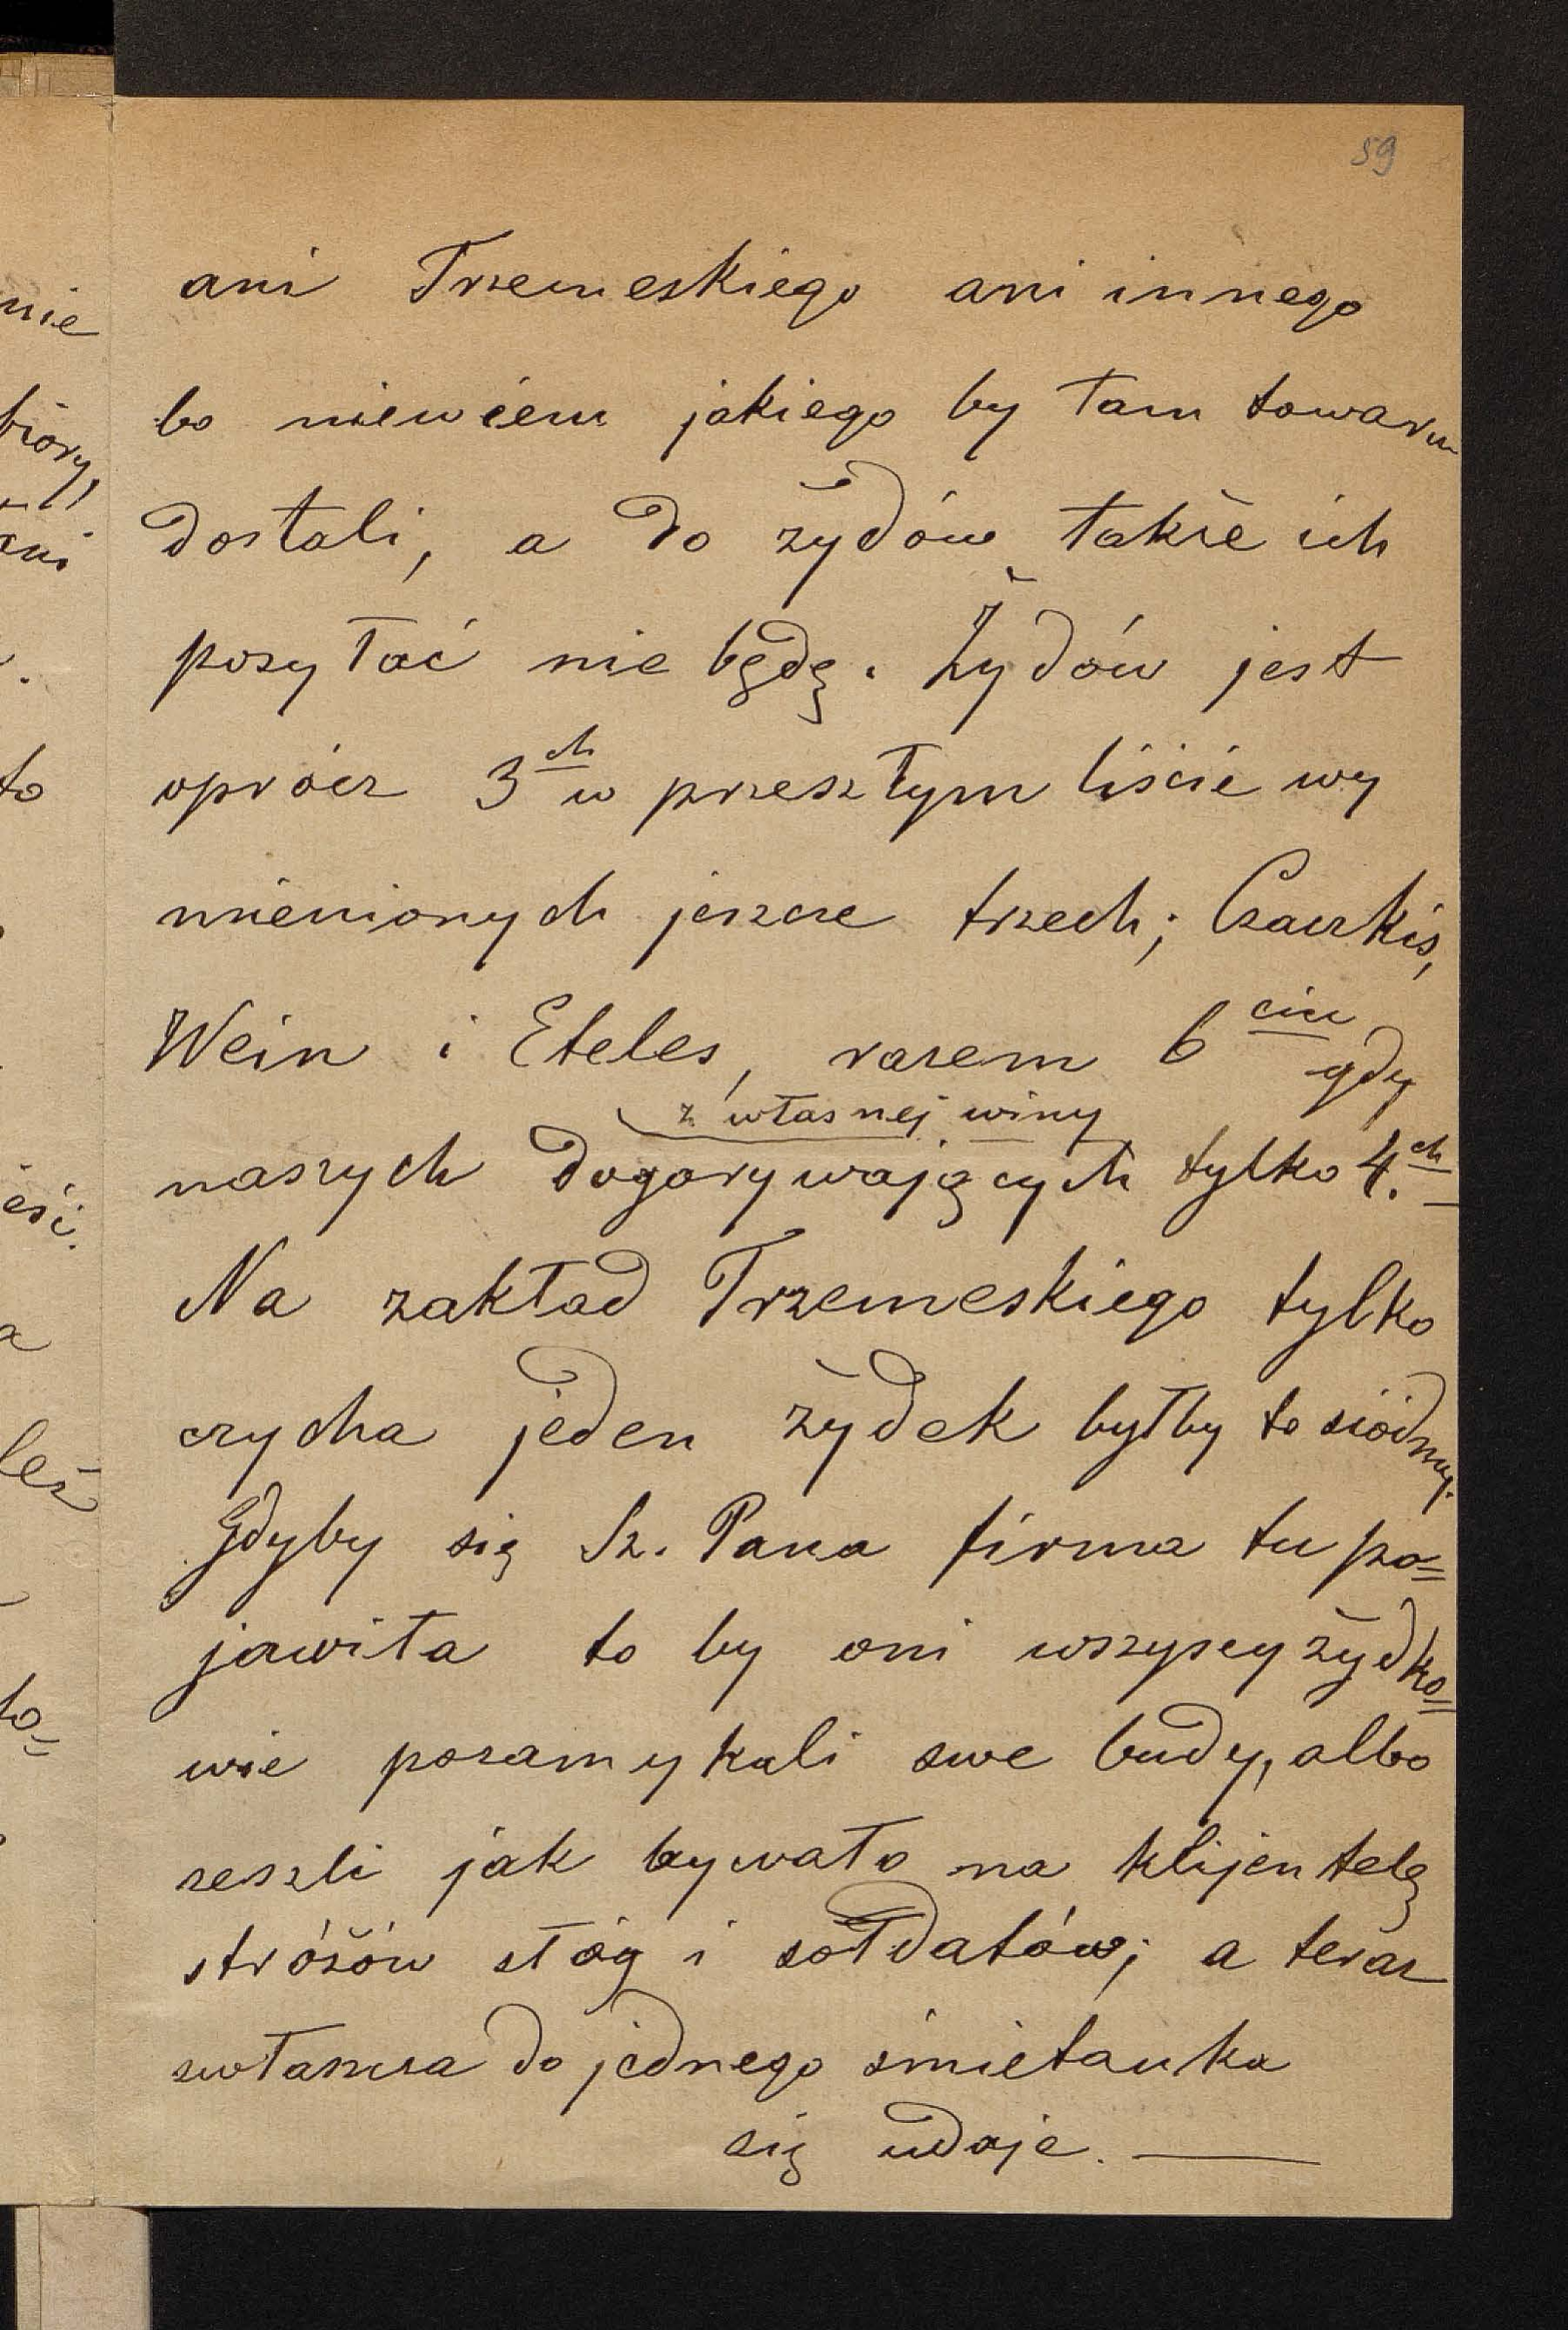 59
ani Trzemeskiego ani innego
bo niewiem jakiego by tam towaru
dostali, a do żydów także ich
posyłać nie będę. Żydów jest
oprócz 3ch w przeszłym liście wy
mienionych jeszcze trzech; Czaczkis,
Wein i Eteles, razem 6ciu gdy
z własnej winy
naszych dogorywających tylko 4.ch
Na zakład Trzemeskiego tylko
czycha jeden żydek byłby to siódmy.
Gdyby się Sz. Pana firma tu po=
jawiła to by oni wszyscy żydko=
wie pozamykali swe budy, albo
zeszli jak bywało na klijentelę
stróżów sług i sołdatów; a teraz
zwłaszcza do jednego śmietanka
się udaje. —
nie
biory,
ani
to
eść.
a
też
to=